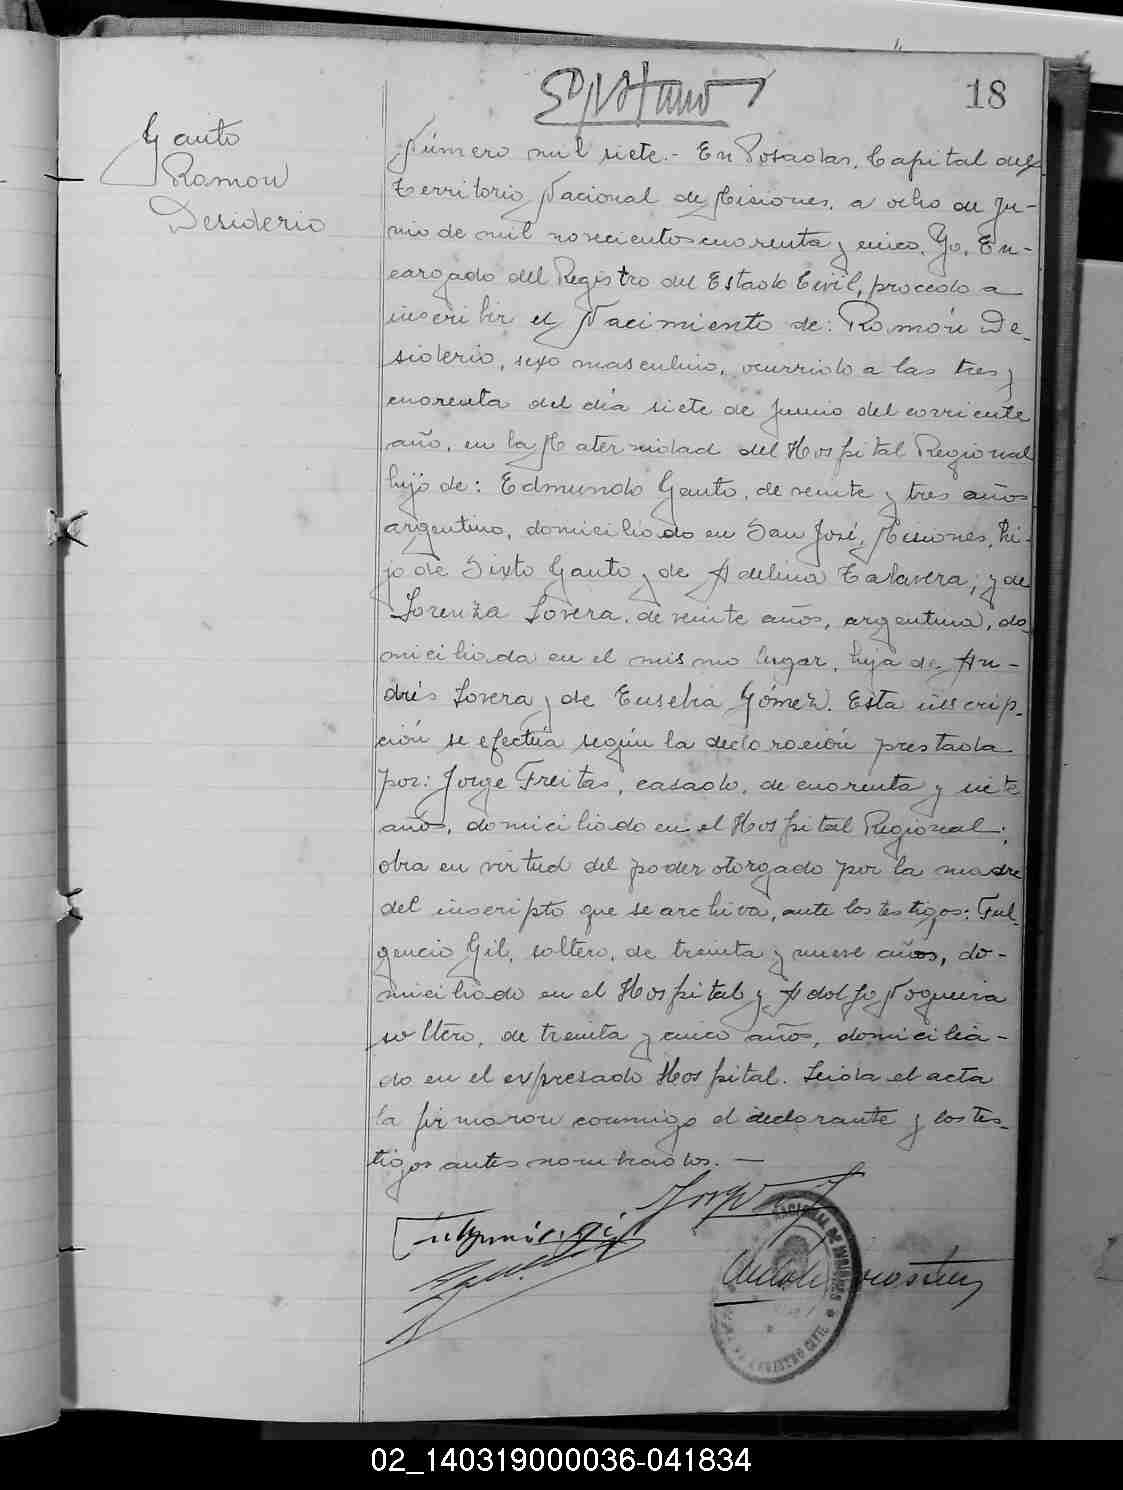 18
Gauto
Ramon
Desiderio
Número mil siete.- En Posadas, Capital del
Territorio Nacional de Misiones, a ocho de Ju-
nio de mil novecientos cuarenta y cinco. Yo, En-
cargado del Registro del Estado Civil, procedo a
inscribir el Nacimiento de: Ramón De-
siderio, sexo masculino, ocurrido a las tres y
cuarenta del día siete de Junio del corriente
año, en la Maternidad del Hospital Regional
hijo de: Edmundo Gauto, de veinte y tres años
argentino, domiciliado en San José, Misiones, hi-
jo de Sixto Gauto y de Adelina Talavera; y de
Lorenza Lovera, de veinte años, argentina, do-
miciliada en el mismo lugar, hija de An-
drés Lovera y de Eusebia Gómez. Esta inscrip-
ción se efectúa según la declaración prestada
por: Jorge Freitas, casado, de cuarenta y siete
años, domiciliado en el Hospital Regional;
obra en virtud del poder otorgado por la madre
del inscripto que se archiva, ante los testigos: Ful-
gencio Gil, soltero, de treinta y nueve años, do-
miciliado en el Hospital y Adolfo Nogueira
soltero, de treinta y cinco años, domicilia-
do en el expresado Hospital. Leida el acta
la firmaron conmigo el declarante y los tes-
tigos antes nombrados. —
REGISTRO CIVIL
02_140319000036-041834